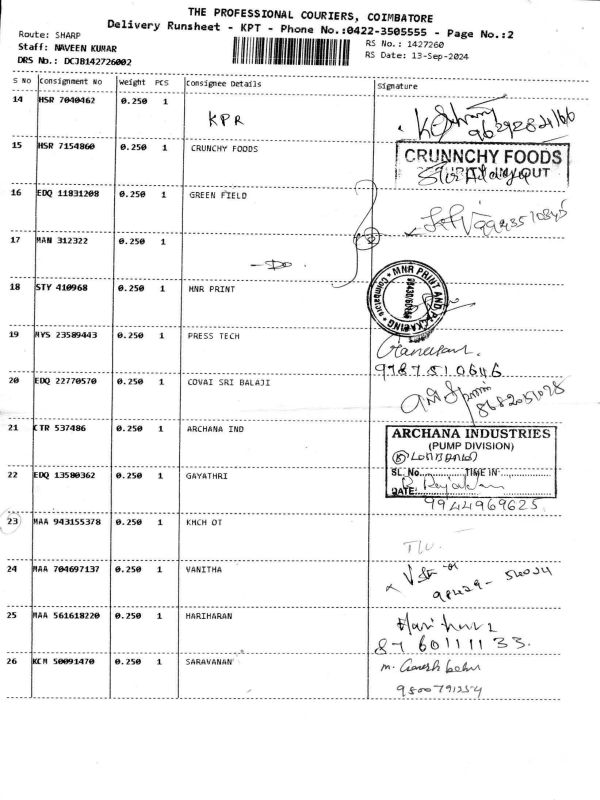 THE PROFESSIONAL COURIERS, COIMBATORE
Delivery Runsheet - KPT - Phone No.:0422-3505555 - Page No.:2
Route: SHARP
RS No.: 1427260
Staff: NAVEEN KUMAR
RS Date: 13-Sep-2024
DRS No.: DCJB142726002
S No Consignment No Weight PCS Consignee Details Signature
14 HSR 7040462 0.250 1 KPR
15 HSR 7154860 0.250 1 CRUNCHY FOODS
CRUNNCHY FOODS
OUT
16 EDQ 11831208 0.250 1 GREEN FIELD
17 MAN 312322 0.250 1 -Do-
18 STY 410968 0.250 1 MNR PRINT
MNR PRINT AND PACKAGING
Coimbatore
19 MYS 23589443 0.250 1 PRESS TECH
Ganesan.
9787510646
20 EDQ 22770570 0.250 1 COVAI SRI BALAJI
8682051078
21 CTR 537486 0.250 1 ARCHANA IND
ARCHANA INDUSTRIES
(PUMP DIVISION)
SL. No. TIME IN
DATE:
9944969625
22 EDQ 13580362 0.250 1 GAYATHRI
23 MAA 943155378 0.250 1 KMCH OT
24 MAA 704697137 0.250 1 VANITHA
25 MAA 561618220 0.250 1 HARIHARAN
8760111133.
26 KCM 50091470 0.250 1 SARAVANAN
m. Ganesh babu
9800791254